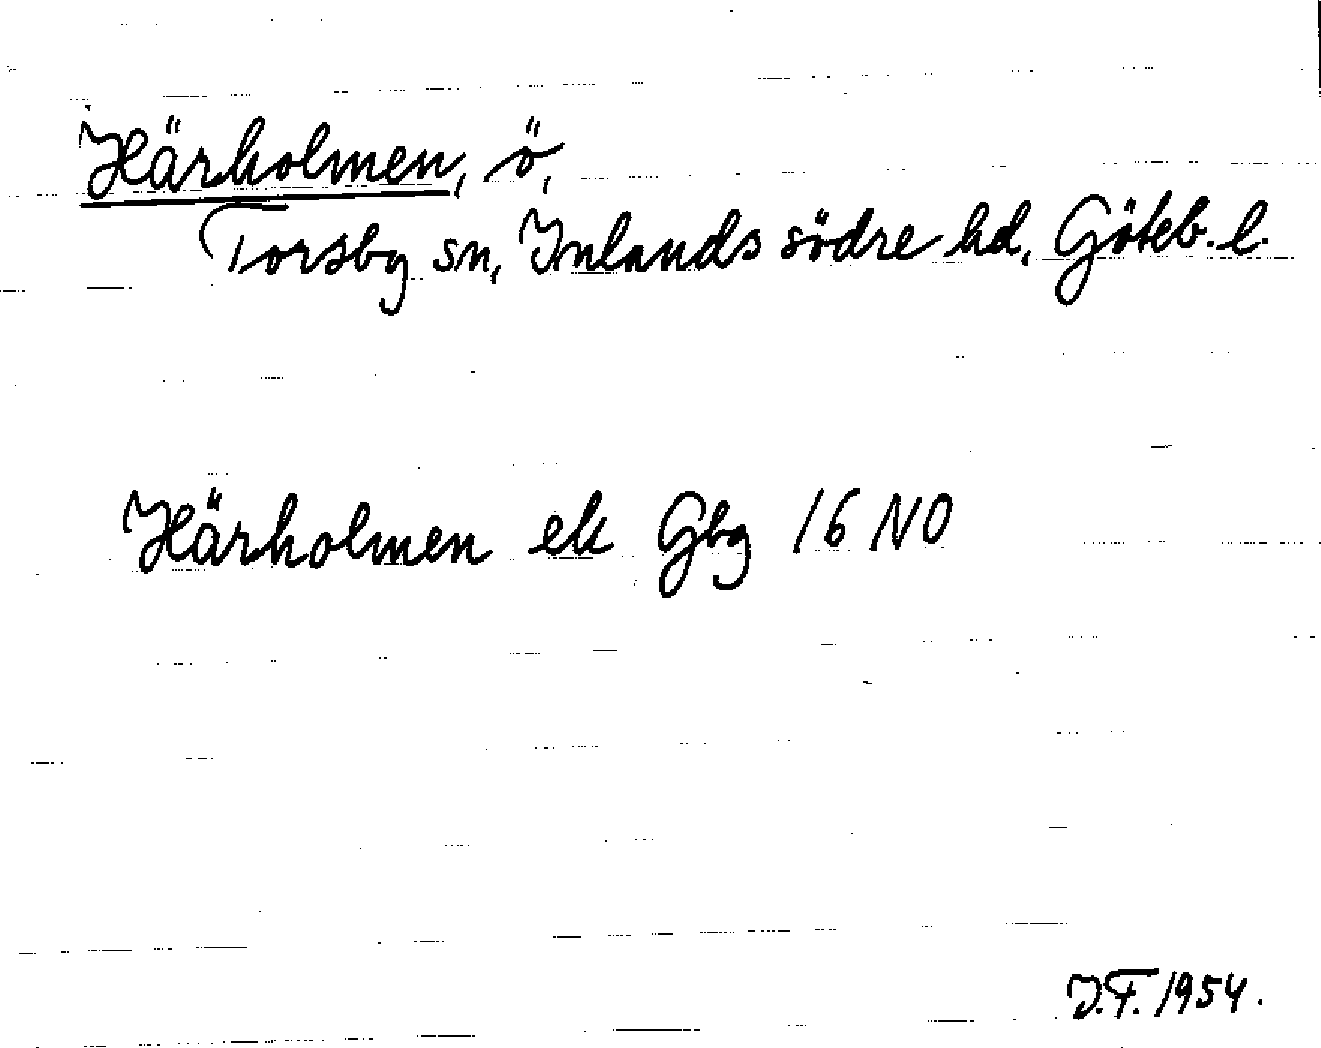 Härholmen, ö,
Torsby sn, Inlands södre hd, Göteb. l.
Härholmen ek Gbg 16 NO
J.F. 1954.